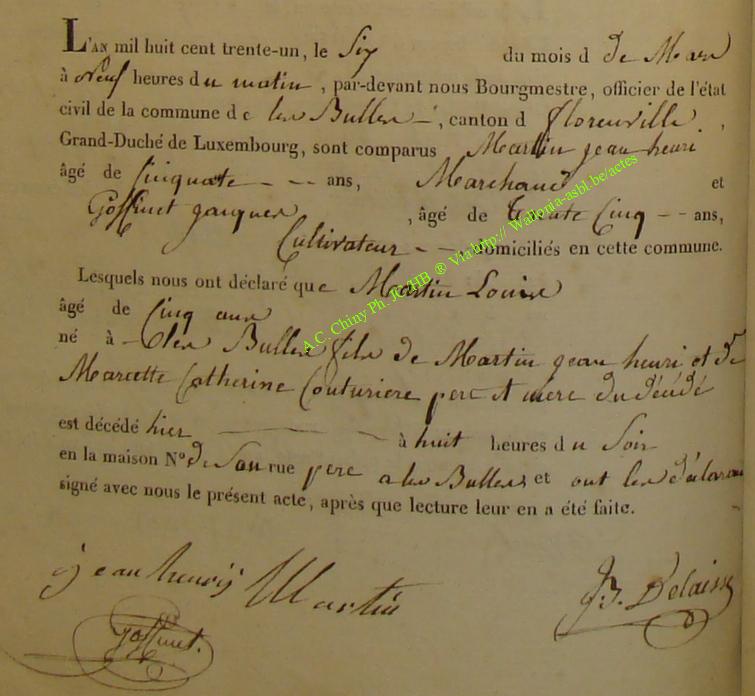 L'AN mil huit cent trente-un, le Six du mois d de Mars
à neuf heures du matin, par-devant nous Bourgmestre, officier de l'état
civil de la commune de les Bulles, canton d florenville,
Grand-Duché de Luxembourg, sont comparus Martin jean henri
âgé de Cinquate ans, Marchand et
Goffinet jacques, âgé de trente Cinq ans,
Cultivateur, domiciliés en cette commune.
Lesquels nous ont déclaré que Martin Louis
âgé de Cinq ans
né à les Bulles fils de Martin jean henri et de
Marcette Catherine Couturiere pere et mere du décédé
est décédé hier à huit heures du Soir
en la maison N° de Son rue pere a les Bulles et ont les déclarans
signé avec nous le présent acte, après que lecture leur en a été faite.
jean henri Martin
J. B. Delaisse
goffinet.
A.C. Chiny Ph. JC/HB ® Via http:// Wallonia-asbl.be/actes